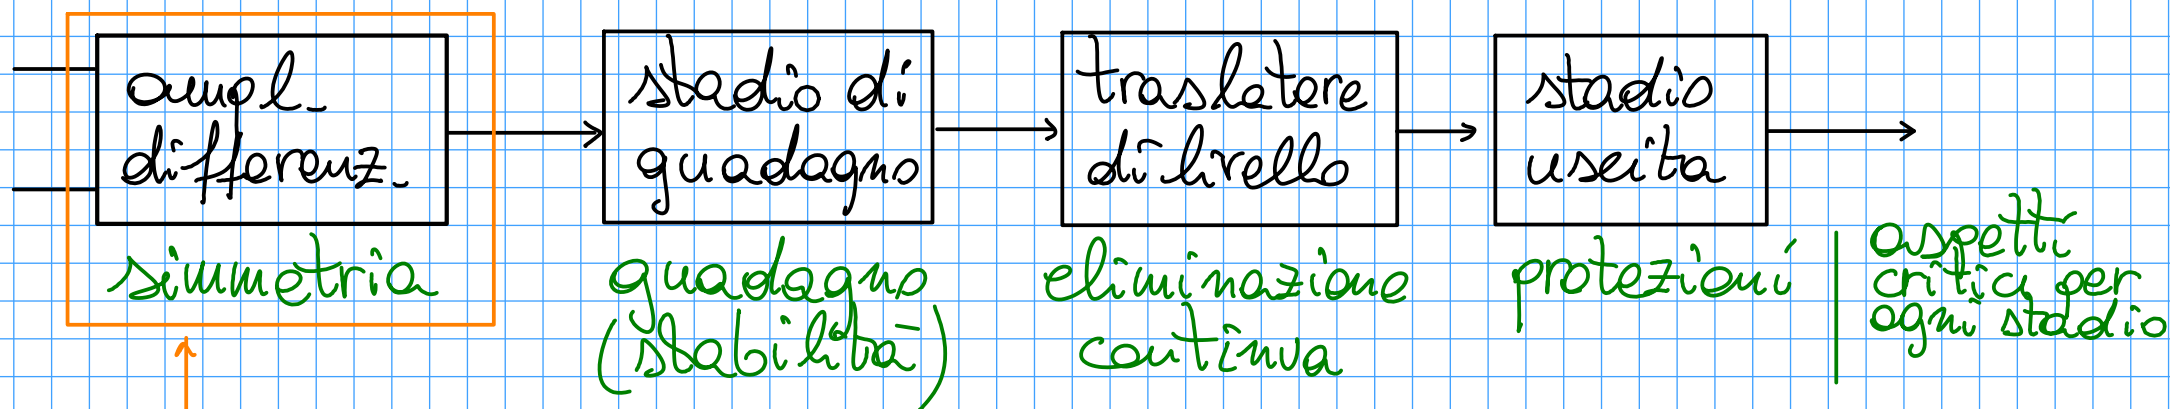 ampl.
differenz.
stadio di
guadagno
traslatore
di livello
stadio
uscita
simmetria
guadagno
(stabilità)
eliminazione
continua
protezioni
aspetti
critici per
ogni stadio